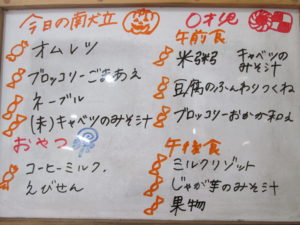 今日の献立
オムレツ
ブロッコリーごまあえ
ネーブル
(未)キャベツのみそ汁
おやつ
コーヒーミルク.
えびせん
0才児
午前食
米粥 キャベツのみそ汁
豆腐のふんわりつくね
ブロッコリーおかか和え
午後食
ミルクリゾット
じゃが芋のみそ汁
果物